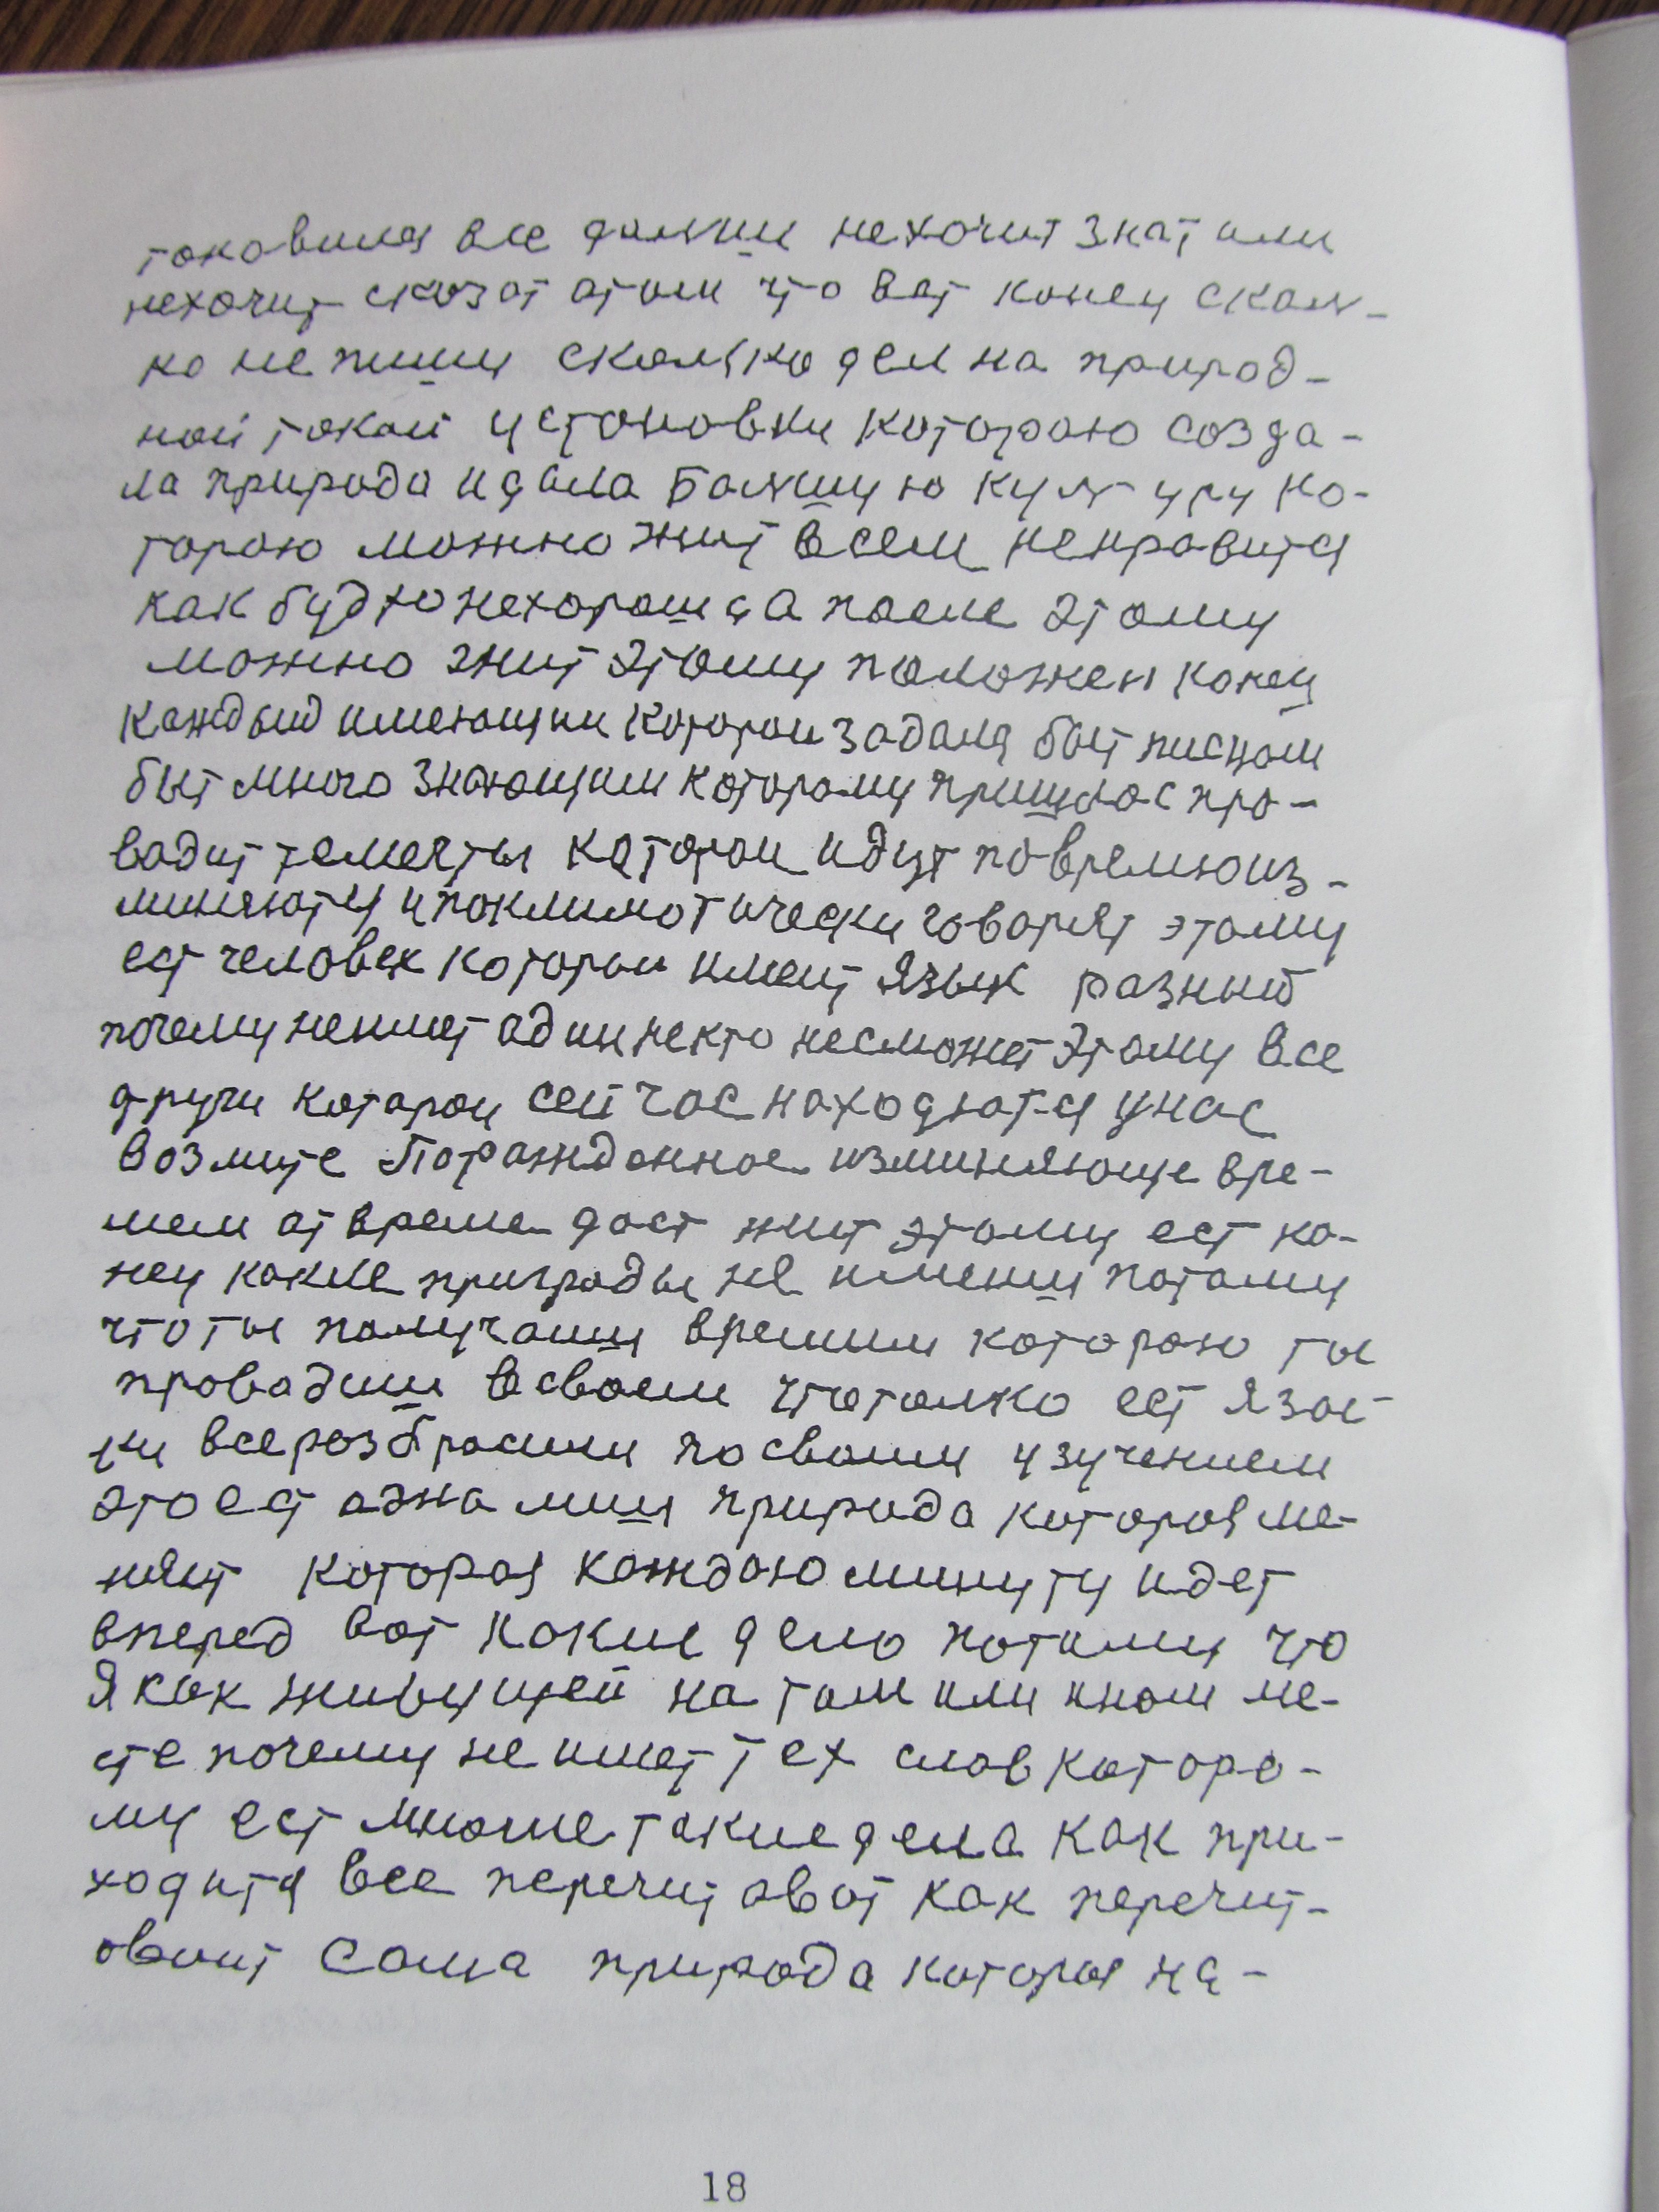 токовился все дальши нехочит знат или
нехочит сказат атом что ват конец скаль-
ко не пиши сколько дел на природ-
най такой установки которою созда-
ла природа и дала Балшую культуру ко-
торою можно жит всем ненравится
как будто нехорош да после этому
можно жит этому положен конец
каждый имеющии которои задался быт писцом
быт много знающим которому пришлос про-
вадит темечты которои идут повремю из-
миняются ипоклиматически говорят этому
ест человек которои имеит язык разный
почему неимет адин некто несможет этому все
други котарои сейчас находются унас
возмите Паражденное изминяюще вре-
мем от време даст жит этому ест ко-
нец какие приграды не имеиш патому
что ты получаиш времим которою ты
проводиш всвоем чтотолко ест язы-
ки всеразбрасили по своим узучением
этоест адна лиш природа которая ме-
няит которая каждою минуту идет
вперед вот какие дело потому что
Я как живущей на том или ином ме-
сте почему не имет тех слов которо-
му ест многие такие дела как при-
ходится все перечитават как перечит-
оваит сама природа которая на-
18